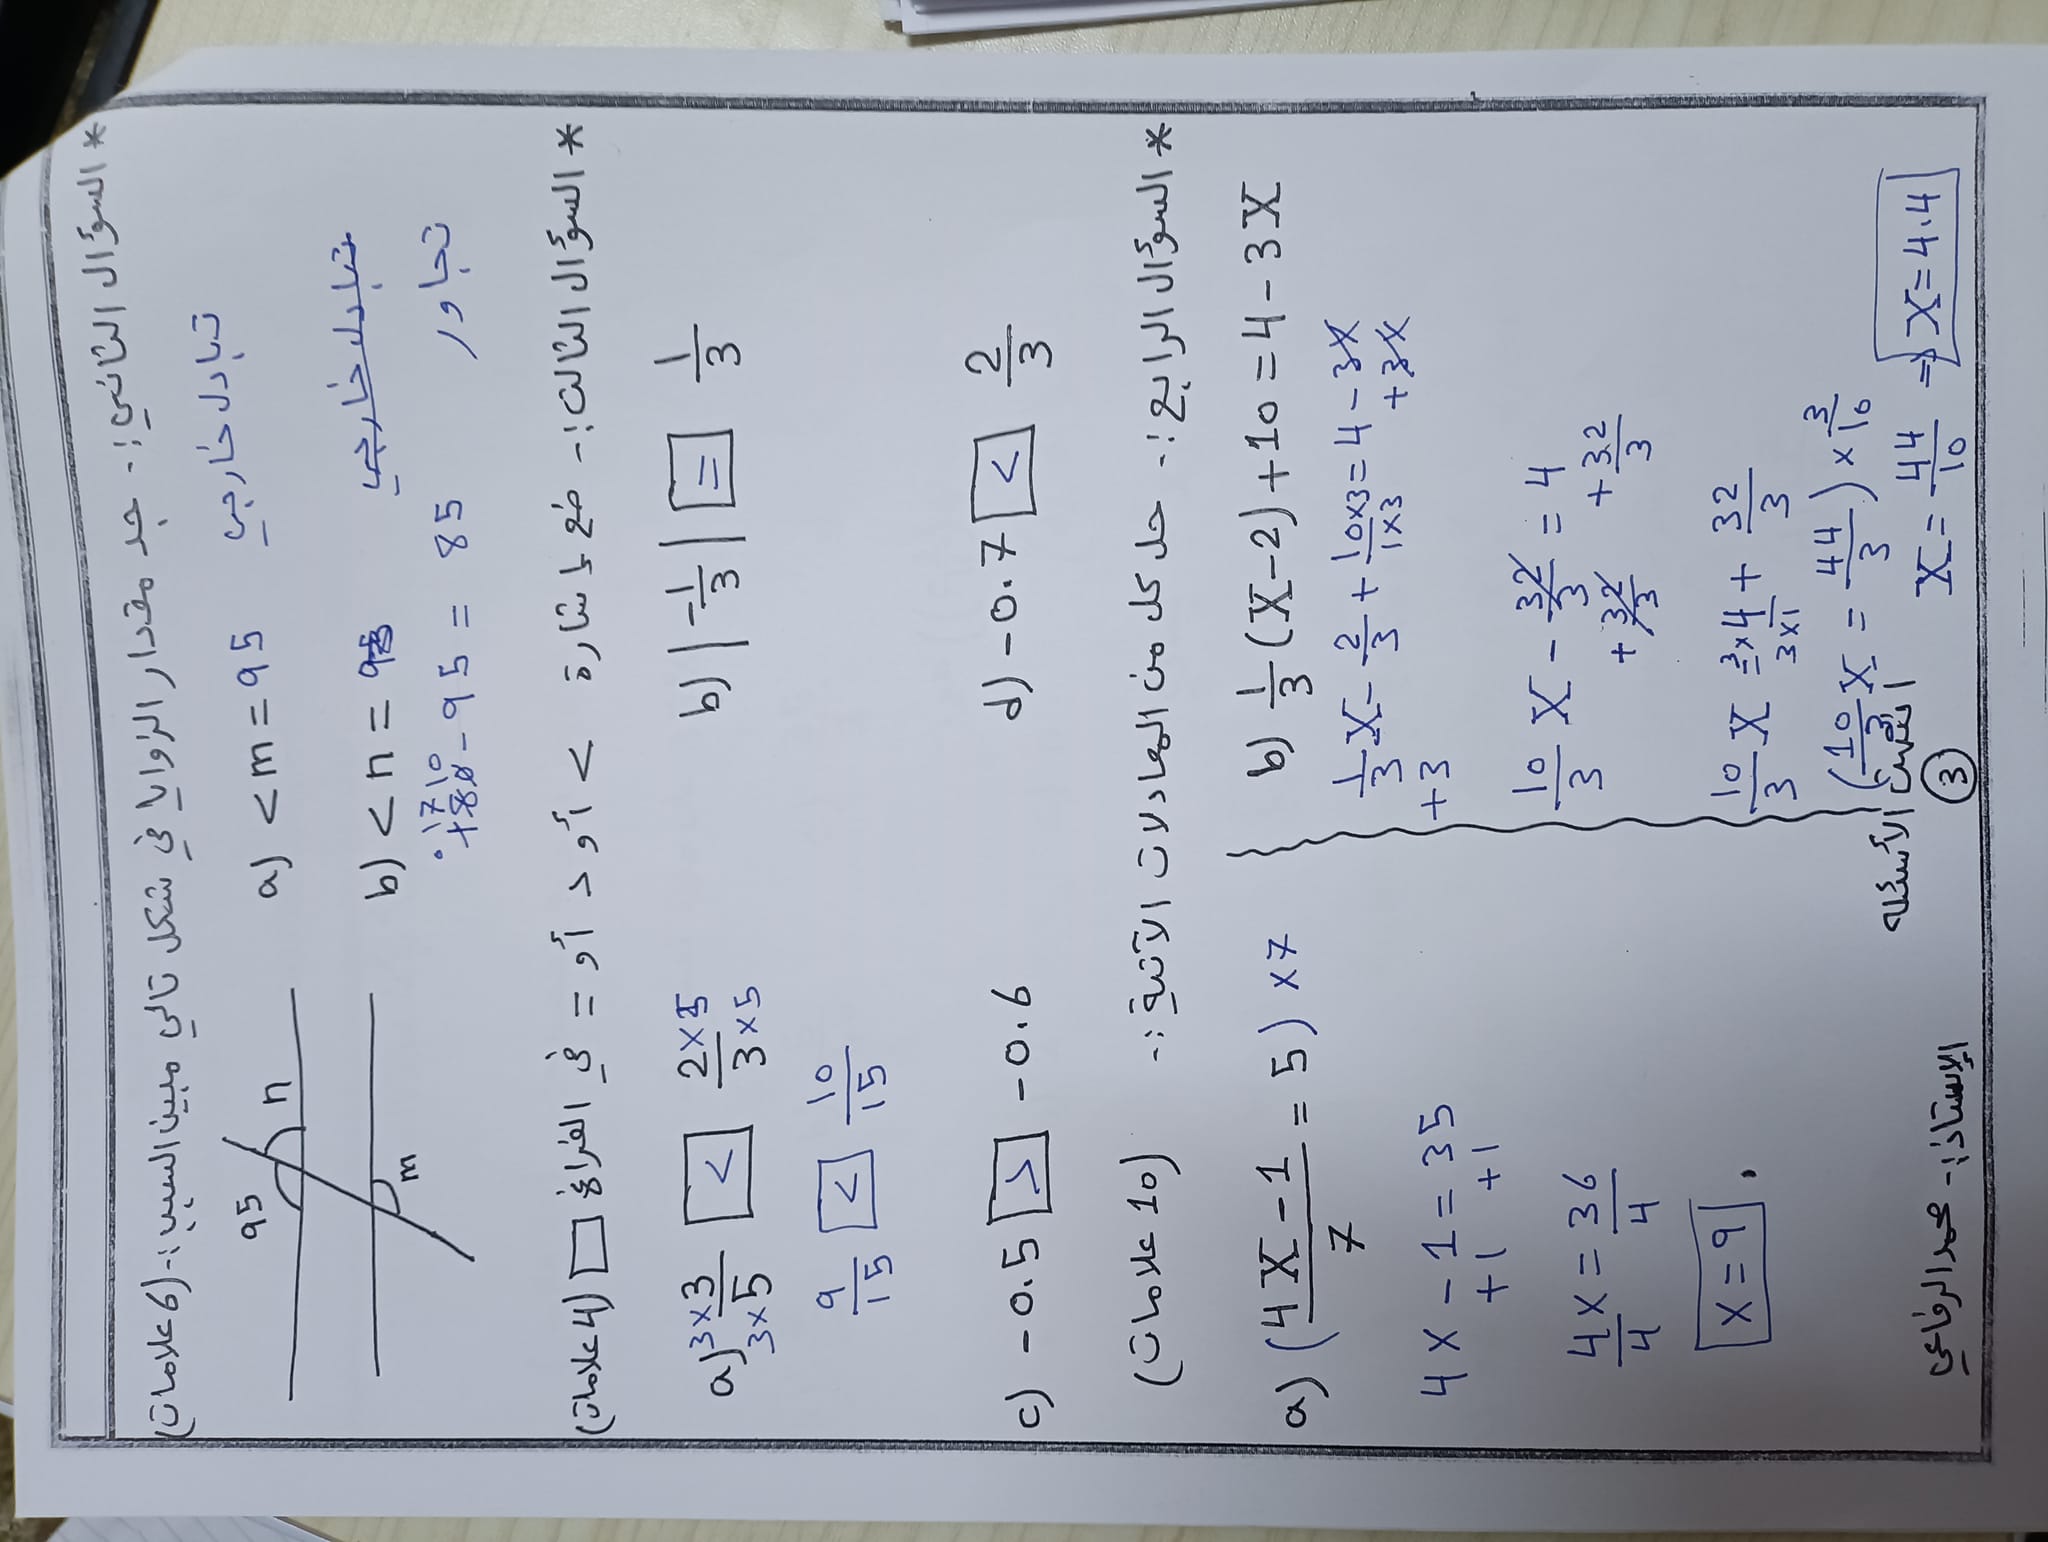 * السؤال الثاني :- جد مقدار الزوايا في شكل تالي مبين السبب :- (6 علامات)
95
n
m
a) <m = 95 تبادل خارجي
b) <n = 95 تبادل خارجي
180 - 95 = 85 تجاور
* السؤال الثالث :- ضع إشارة > أو < أو = في الفراغ □ (4 علامات)
a) 3×3/3×5 < 2×5/3×5
9/15 < 10/15
b) |-1/3| = 1/3
c) -0.5 > -0.6
d) -0.7 < 2/3
* السؤال الرابع :- حل كل من المعادلات الآتية :- (10 علامات)
a) (4X-1/7 = 5) ×7
4X - 1 = 35
+1 +1
4X/4 = 36/4
X = 9
b) 1/3 (X-2) + 10 = 4 - 3X
1/3 X - 2/3 + 10×3/1×3 = 4 - 3X
+3 +3X
10/3 X - 32/3 = 4
+32/3 +32/3
10/3 X = 3×4/3×1 + 32/3
(10/3 X = 44/3) × 3/10
X = 44/10 ⇒ X = 4.4
انتهت الأسئلة
3
الإستاذ :- محمد الرفاعي